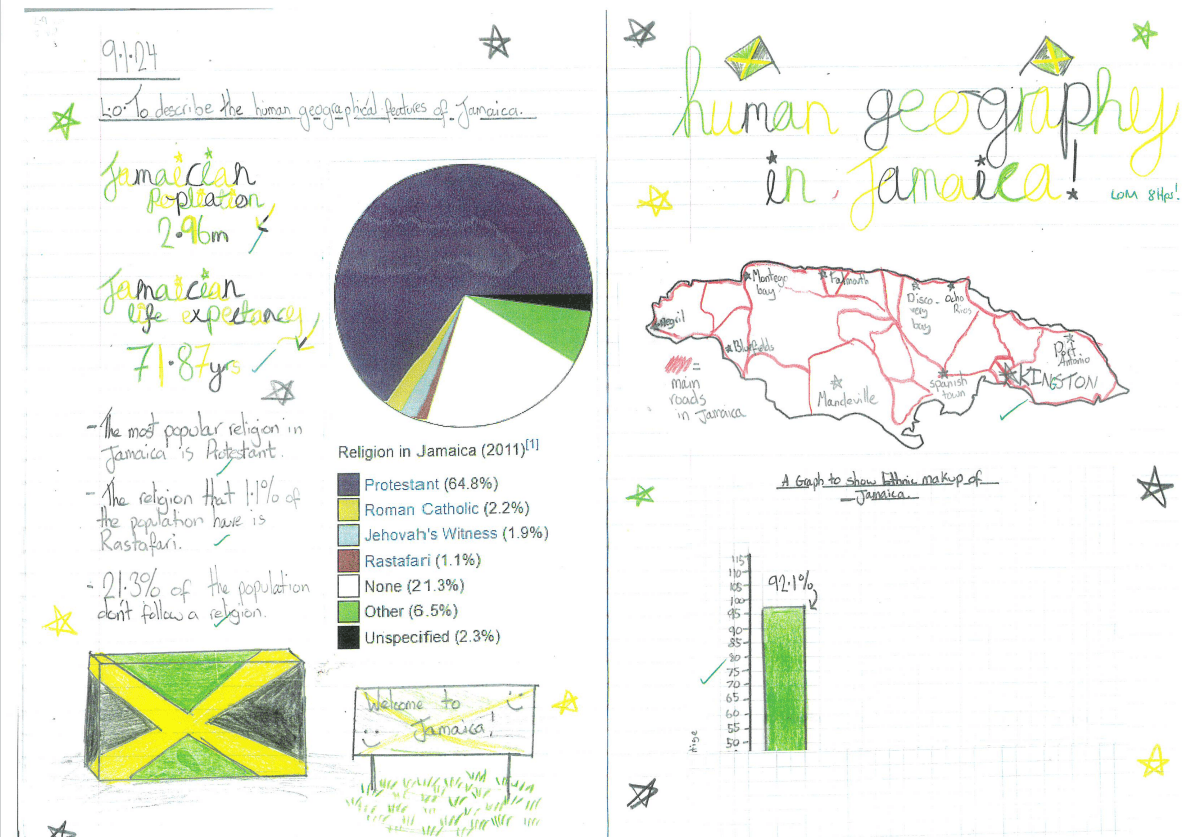 9.1.24
L.O. To describe the human geographical features of Jamaica.
Jamaician
Poplation
2.96m
Jamaician
life expectancy
71.87yrs
- The most popular religion in
Jamaica is Protestant.
- The religion that 1.1% of
the population have is
Rastafari.
- 21.3% of the population
don't follow a religion.
Religion in Jamaica (2011)[1]
Protestant (64.8%)
Roman Catholic (2.2%)
Jehovah's Witness (1.9%)
Rastafari (1.1%)
None (21.3%)
Other (6.5%)
Unspecified (2.3%)
Welcome to
Jamaica!
human geography
in Jamaica!
WOM 8Hps!
Montego
bay
Falmouth
Disco-
very
bay
Ocho
Rios
Negril
Bluefields
Port
Antonio
=
main
roads
in Jamaica
Mandeville
Spanish
town
KINGSTON
A Graph to show Ethnic makup of
Jamaica.
92.1%
115
110
105
100
95
90
85
80
75
70
65
60
55
50